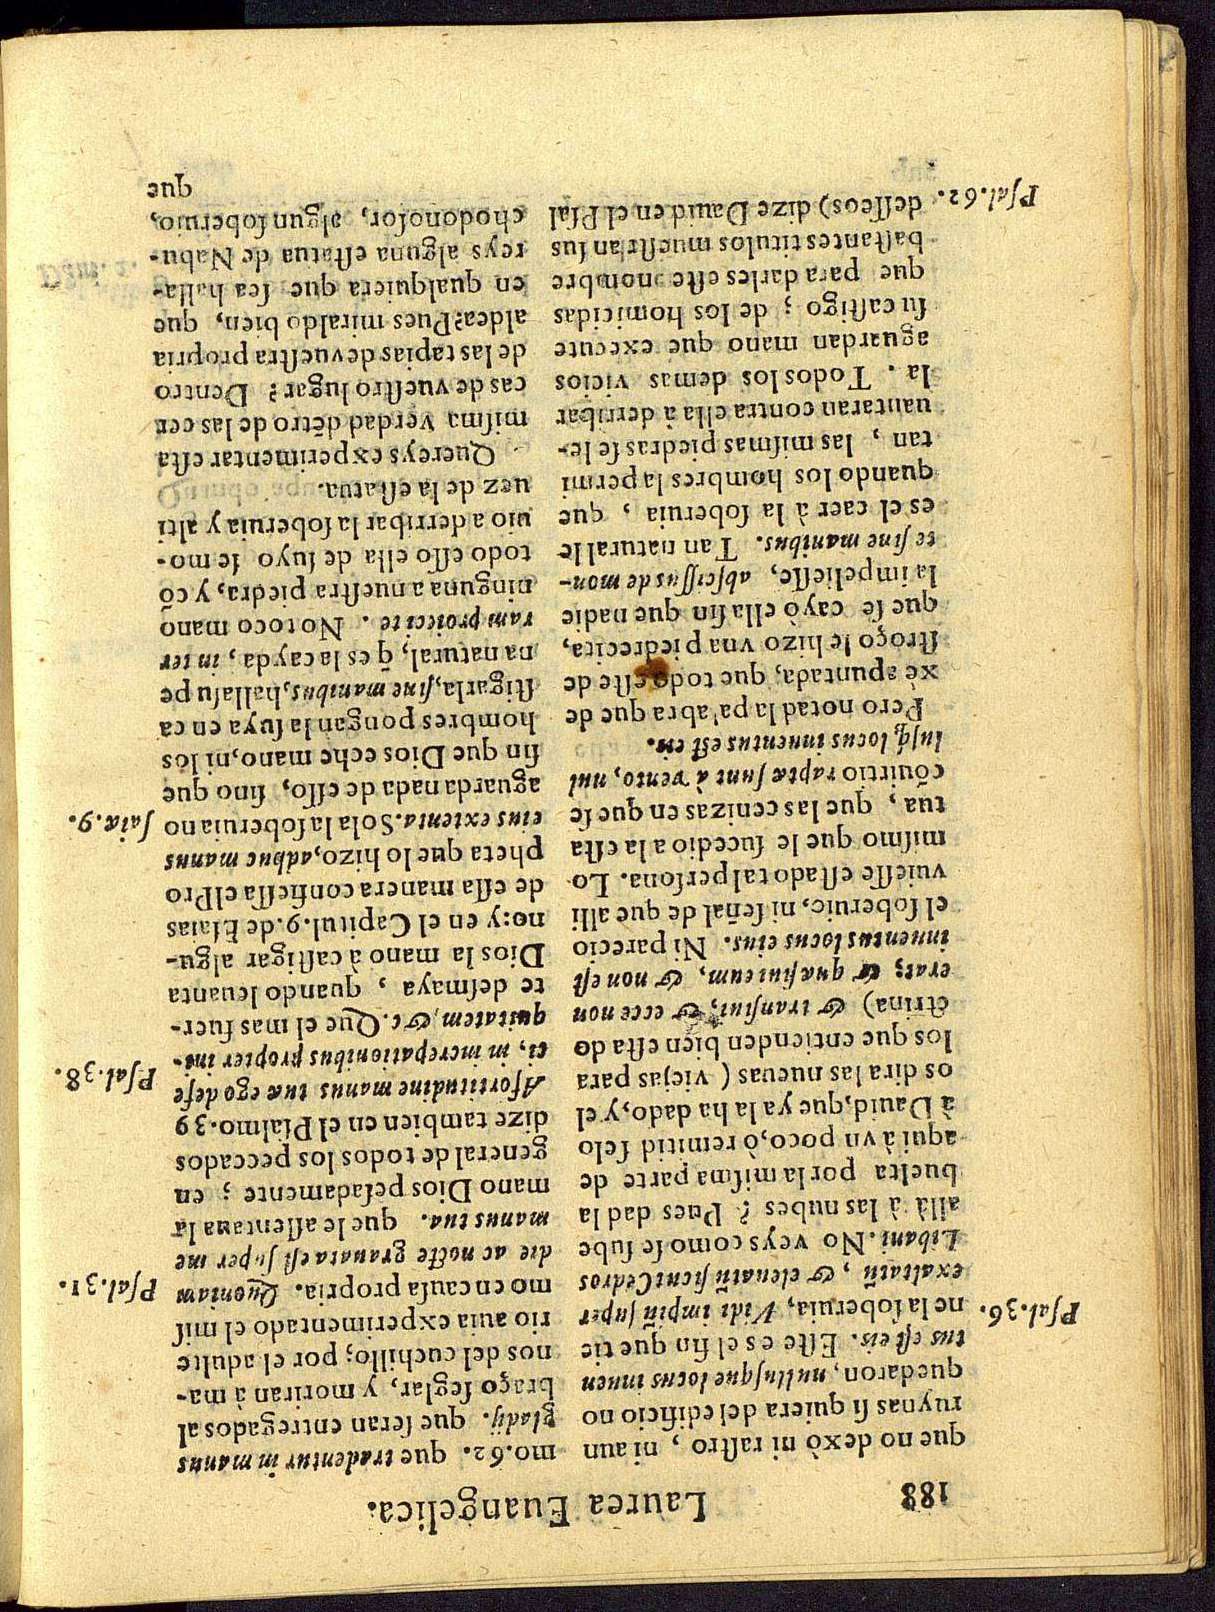 188 Laurea Euangelica.
que no dexò ni raſtro, ni aun
ruynas ſi quiera del edificio no
quedaron, nulluſque locus inuen
tus eſt eis. Eſte es el fin que tie
Pſal.36. ne la ſoberuia, Vidi impiũ ſuper
exaltatũ, & eleuatũ ſicut Cedros
Libani. No veys como ſe ſube
allà à las nubes? Pues dad la
buelta por la miſma parte de
aqui à vn poco, ò remitid ſelo
à Dauid, que ya la ha dado, y el
os dira las nueuas (viejas para
los que entienden bien eſta do
ctrina) & tranſiui, & ecce non
erat; & quæſiui eum, & non eſt
inuentus locus eius. Ni parecio
el ſoberuio, ni ſeñal de que alli
vuieſſe eſtado tal perſona. Lo
miſmo que le ſucedio a la eſta
tua, que las cenizas en que ſe
cõuirtio raptæ ſunt à vento, nul
luſq; locus inuentus eſt eis.
Pero notad la palabra que de
xè apuntada, que todo eſte de
ſtroço le hizo vna piedrecita,
que ſe cayò ella ſin que nadie
la impelieſſe, abſciſſus de mon-
te ſine manibus. Tan natural le
es el caer à la ſoberuia, que
quando los hombres la permi
tan, las miſmas piedras ſe le-
uantaran contra ella à derribar
la. Todos los demas vicios
aguardan mano que execute
ſu caſtigo; de los homicidas
que para darles eſte nombre
baſtantes titulos mueſtran ſus
Pſal.62. deſſeos) dize Dauid en el Pſal
mo.62. que tradentur in manus
gladij. que ſeran entregados al
braço ſeglar, y moriran à ma-
nos del cuchillo; por el adulte
rio auia experimentado el miſ
mo en cauſa propria. Quoniam Pſal.31.
die ac nocte grauata eſt ſuper me
manus tua. que le aſſentaua la
mano Dios peſadamente; en
general de todos los peccados
dize tambien en el Pſalmo.39
A fortitudine manus tuæ ego defe Pſal.38.
ci, in increpationibus propter ini-
quitatem, &c. Que el mas fuer-
te deſmaya, quando leuanta
Dios la mano à caſtigar algu-
no: y en el Capitul.9. de Eſaias
de eſſa manera confieſſa el Pro
pheta que lo hizo, adhuc manus
eius extenta. Sola la ſoberuia no ſaiæ.9.
aguarda nada de eſſo, ſino que
ſin que Dios eche mano, ni los
hombres pongan la ſuya en ca
ſtigarla, ſine manibus, halla ſu pe
na natural, q̃ es la cayda, in ter
ram proiecite. No toco mano
ninguna a nueſtra piedra, y cõ
todo eſſo ella de ſuyo ſe mo-
uio a derribar la ſoberuia y alti
uez de la eſtatua.
Quereys experimentar eſta
miſma verdad dẽtro de las cer
cas de vueſtro lugar? Dentro
de las tapias de vueſtra propria
aldea? Pues miraldo bien, que
en qualquiera que ſea halla-
reys alguna eſtatua de Nabu- Dani. 2.
chodonoſor, algun ſoberuio,
que